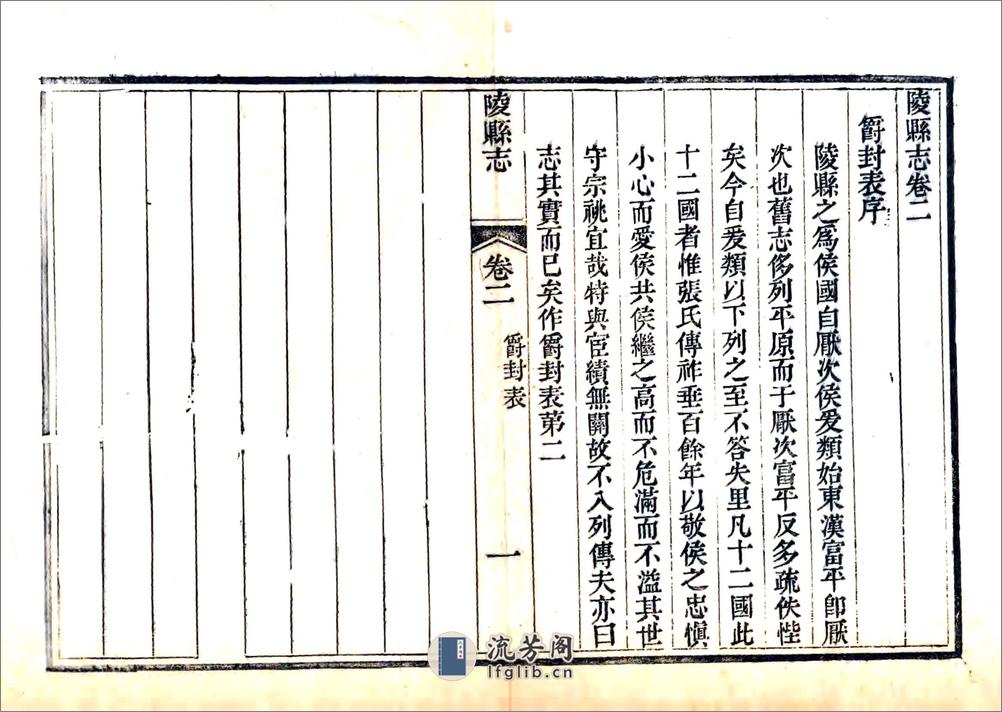 陵縣志卷二
爵封表序
陵縣之爲侯國自厭次侯爰類始東漢富平卽厭
次也舊志侈列平原而于厭次富平反多疏佚慳
矣今自爰類以下列之至不答失里凡十二國此
十二國者惟張氏傳祚垂百餘年以敬侯之忠愼
小心而愛侯共侯繼之高而不危滿而不溢其世
守宗祧宜哉特與宦績無關故不入列傳夫亦曰
志其實而已矣作爵封表第二
陵縣志
卷二
爵封表
一
流芳阁
lfglib.cn